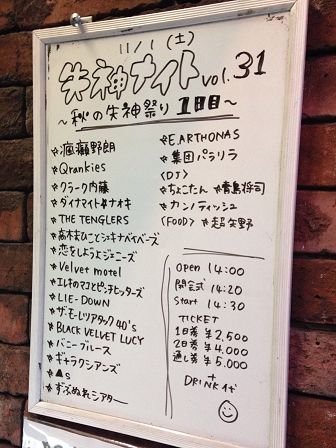 11/1(土)
失神ナイト vol.31
～秋の失神祭り 1日目～
☆瘋癲野朗
☆Qrankies
☆クラーク内藤
☆ダイナマイト☆ナオキ
☆THE TENGLERS
☆高木まひことシェキナベイベーズ
☆恋をしようよジェニーズ
☆Velvet motel
☆エレキのマコとピンチヒッターズ
☆LIE-DOWN
☆ザ・モーレツアタック40's
☆BLACK VELVET LUCY
☆バニーブルース
☆ギャラクシアンズ
☆▲s
☆ずぶぬれシアター
☆E.ARTHONAS
☆集団パラリラ
(DJ)
☆ちょこたん ☆青島将司
☆カンノティッシュ
(FOOD) ☆超矢野
open 14:00
開会式 14:20
start 14:30
TICKET
1日券 ¥2,500
2日券 ¥4,000
通し券 ¥5,000
+
DRINK代